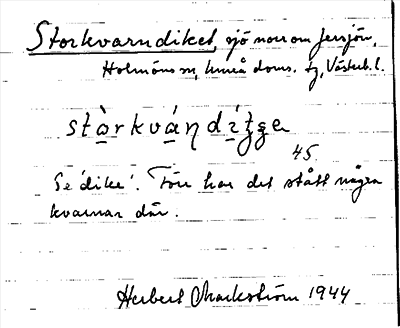 Storkvarndiket, sjö norr om Jersjön,
Holmöns sn, Umeå doms. tg, Västerb. l.
stòrkváṇdítʒe
45
Se 'dike'. Förr har det stått några
kvarnar där.
Herbert Markström 1944